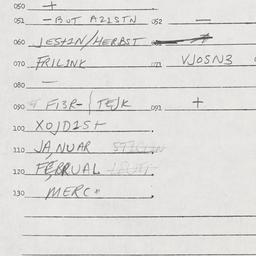 050 +
051 - BUT AZ1STN 052 —
060 JESTIN/HERBST
070 FRILINK 071 VJOSN3
080 —
090 FI3R-/TEJK 091 +
100 XOJDIST
110 JANUAR
120 FEBRUAL
130 MERC